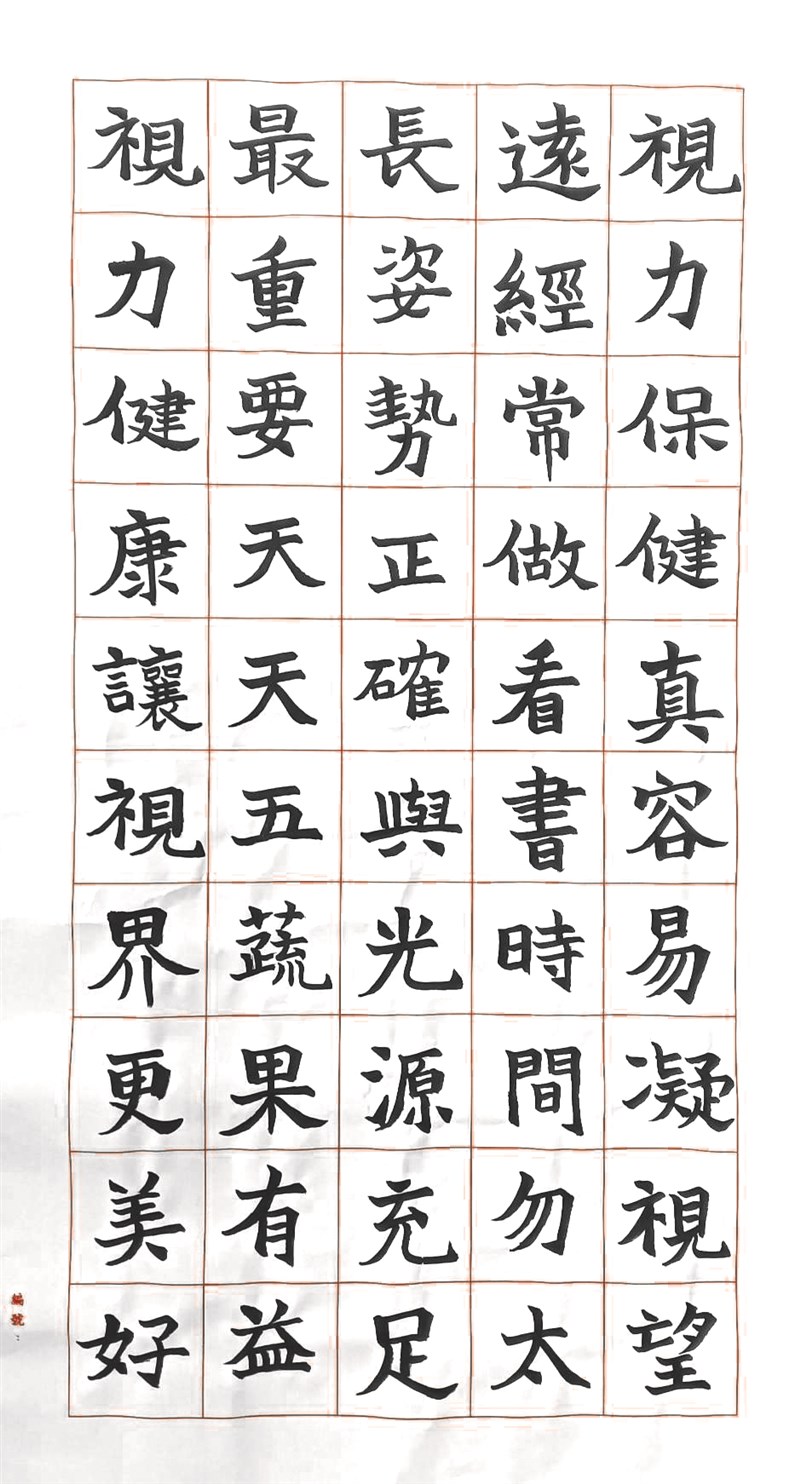 視力保健真容易凝視望
遠經常做看書時間勿太
長姿勢正確與光源充足
最重要天天五蔬果有益
視力健康讓視界更美好
編號：